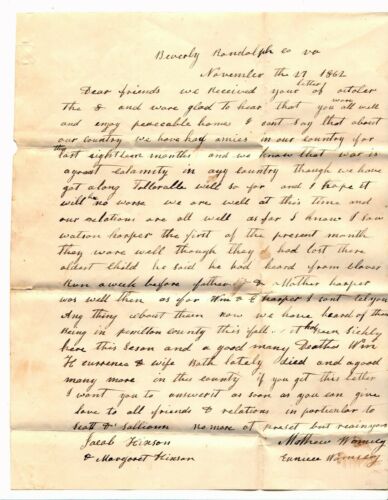 Beverly Randolph co va
November th 27 1862
Dear friends we Received your letter of october
the 8 and ware glad to hear that you ware all well
and enjoy peaceable home I cant Say that about
our country we have had armies in our country for
the last eighteen months and we know that war is
agreat calamity in any country though we have
got along Tollorable well so far and I hope it
will be no worse we are well at this time and
our relations are all well as far I know I saw
watson harper the first of the present month
they ware well though they had lost there
oldest Child he said he had heard from clover
Run aweek before father & Mother harper
was well then as for Wm & E harper I cant tell you
Any thing about them now we have heard of them
Being in pendleton County this fall it has been Sickly
here this Season and a good many Deaths Wm
H & wife Both lately died and agood
many more in this county if you get this letter
I want you to answer it as soon as you can give
love to all friends & relations in particular to
Scott & no more at preset but
Jacob Hinson Mathew Wamsley
& Margaret Hinson Eunice Wamsley